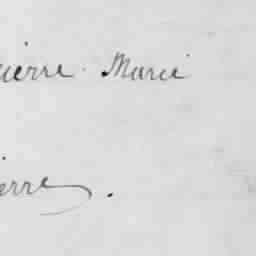 ierre. Marie
ierre.